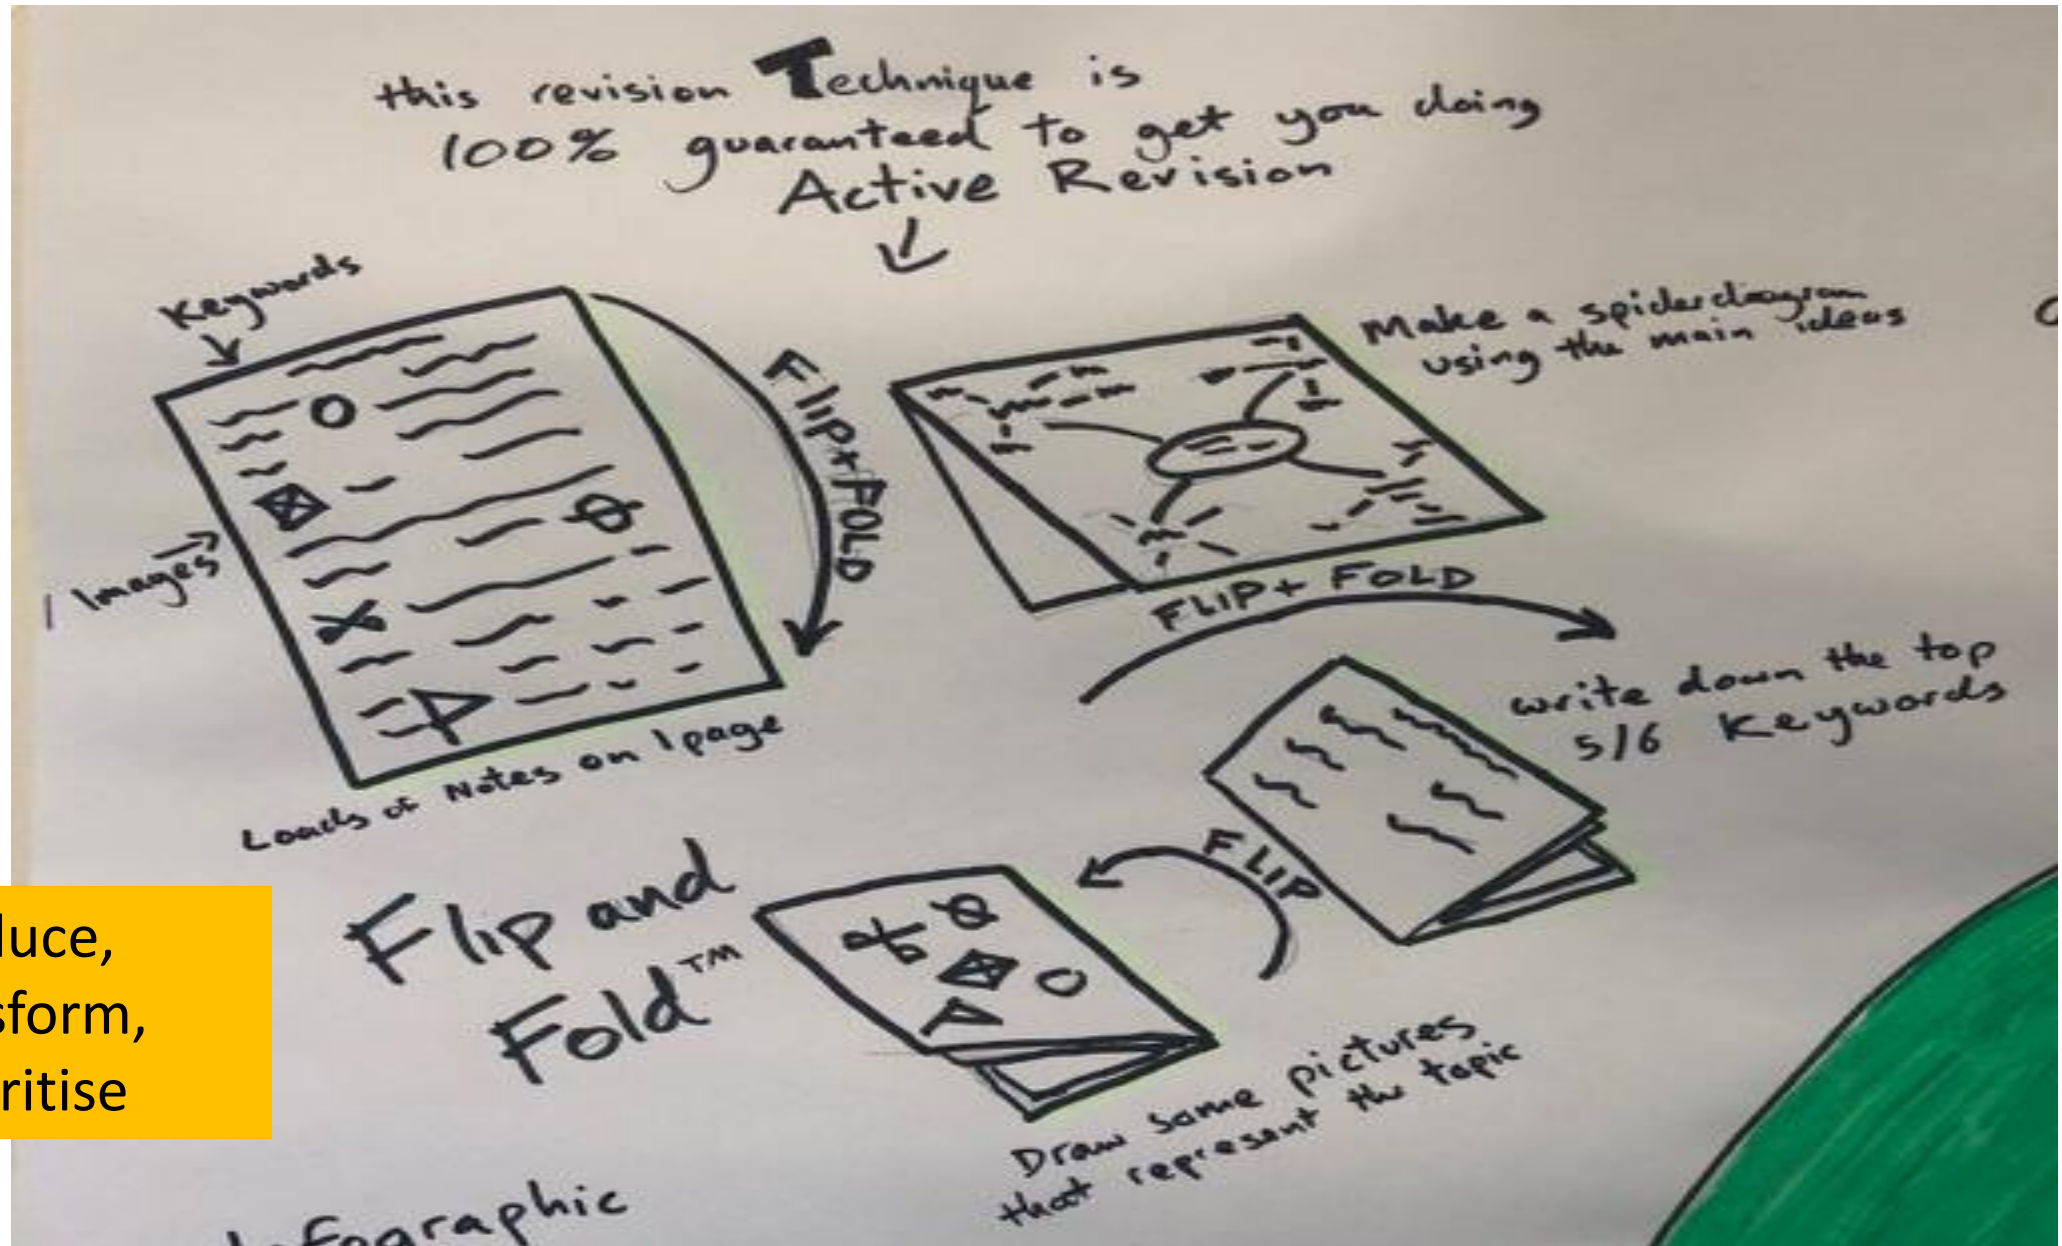 this revision Technique is
100% guaranteed to get you doing
Active Revision
Keywords
Images
Loads of Notes on 1 page
FLIP + FOLD
Make a spiderdiagram
using the main ideas
FLIP + FOLD
write down the top
5/6 Keywords
FLIP
Draw some pictures
that represent the topic
Flip and
Fold™
luce,
sform,
ritise
nfographic